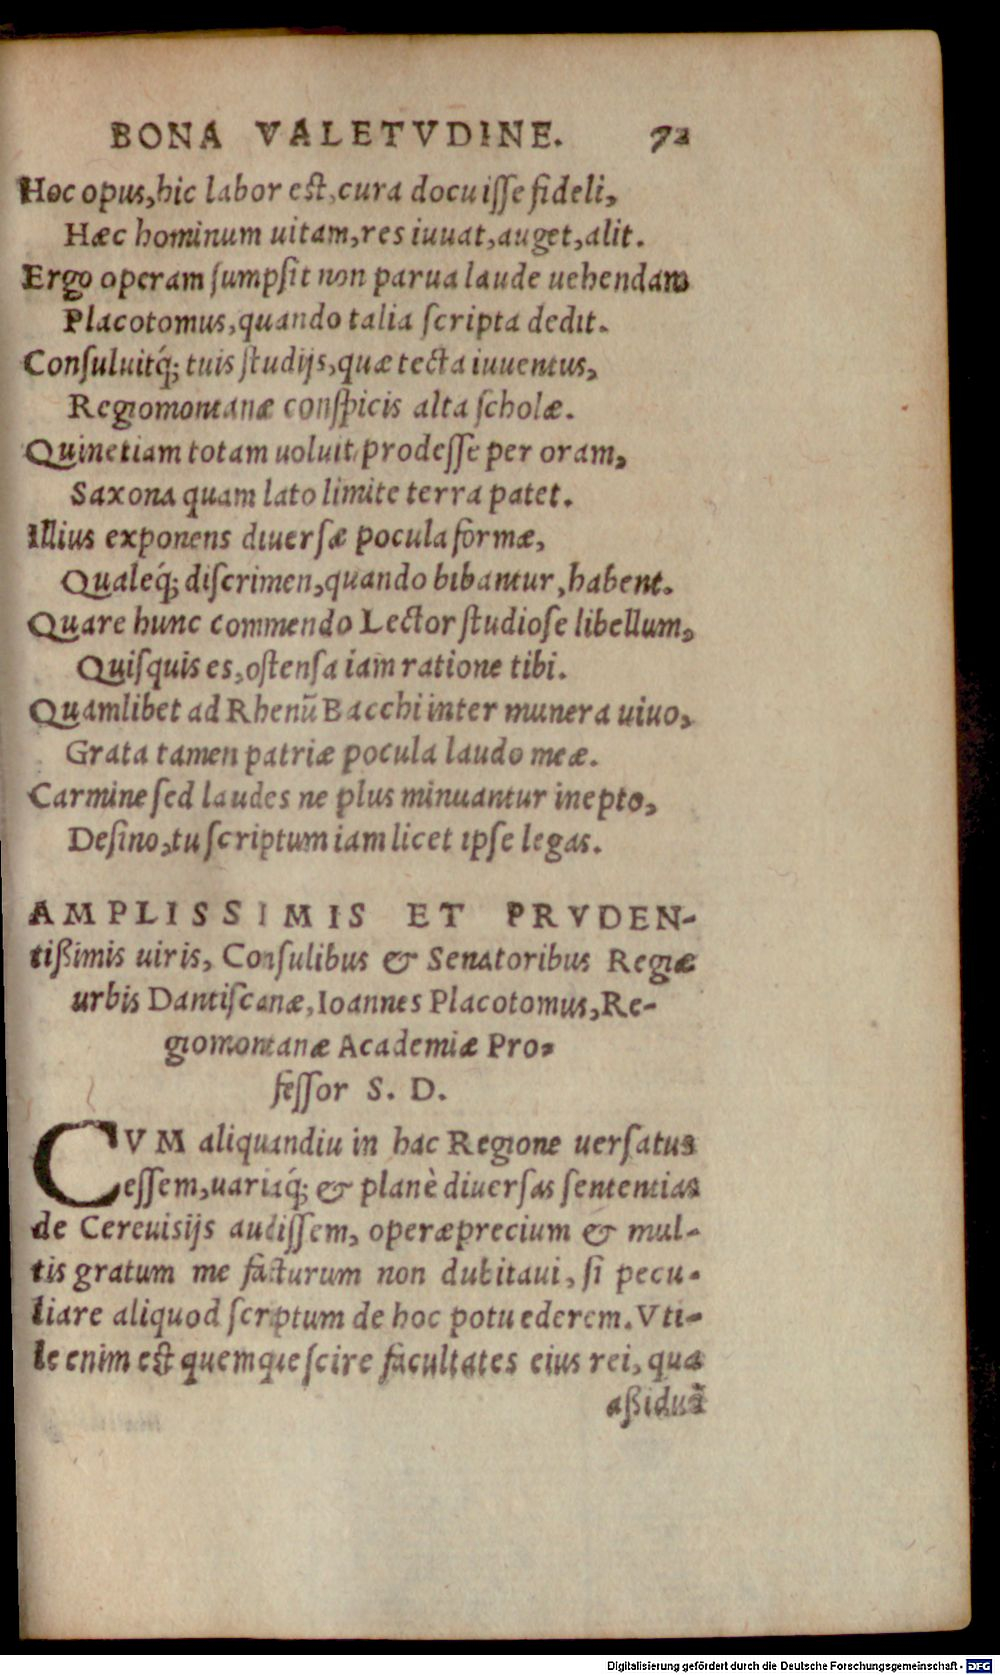 BONA VALETVDINE. 72
Hoc opus, hic labor est, cura docuiſſe fideli,
Hæc hominum uitam, res iuuat, auget, alit.
Ergo operam ſumpſit non parua laude uehendam
Placotomus, quando talia ſcripta dedit.
Conſuluitq́; tuis ſtudijs, quæ tecta iuuentus,
Regiomontanæ conſpicis alta ſcholæ.
Quinetiam totam uoluit prodeſſe per oram,
Saxona quam lato limite terra patet.
Illius exponens diuerſæ pocula formæ,
Qualeq́; diſcrimen, quando bibantur, habent.
Quare hunc commendo Lector ſtudioſe libellum,
Quiſquis es, oſtenſa iam ratione tibi.
Quamlibet ad Rhenū Bacchi inter munera uiuo,
Grata tamen patriæ pocula laudo meæ.
Carmine ſed laudes ne plus minuantur inepto,
Deſino, tu ſcriptum iam licet ipſe legas.
AMPLISSIMIS ET PRVDEN-
tißimis uiris, Conſulibus & Senatoribus Regiæ
urbis Dantiſcanæ, Ioannes Placotomus, Re-
giomontanæ Academiæ Pro-
feſſor S. D.
CVM aliquandiu in hac Regione uerſatus
eſſem, uariaq́; & planè diuerſas ſententias
de Cereuisijs audiſſem, operæprecium & mul-
tis gratum me facturum non dubitaui, ſi pecu-
liare aliquod ſcriptum de hoc potu ederem. Vti-
le enim est quemque ſcire facultates eius rei, qua
aßiduè
Digitalisierung gefördert durch die Deutsche Forschungsgemeinschaft - DFG